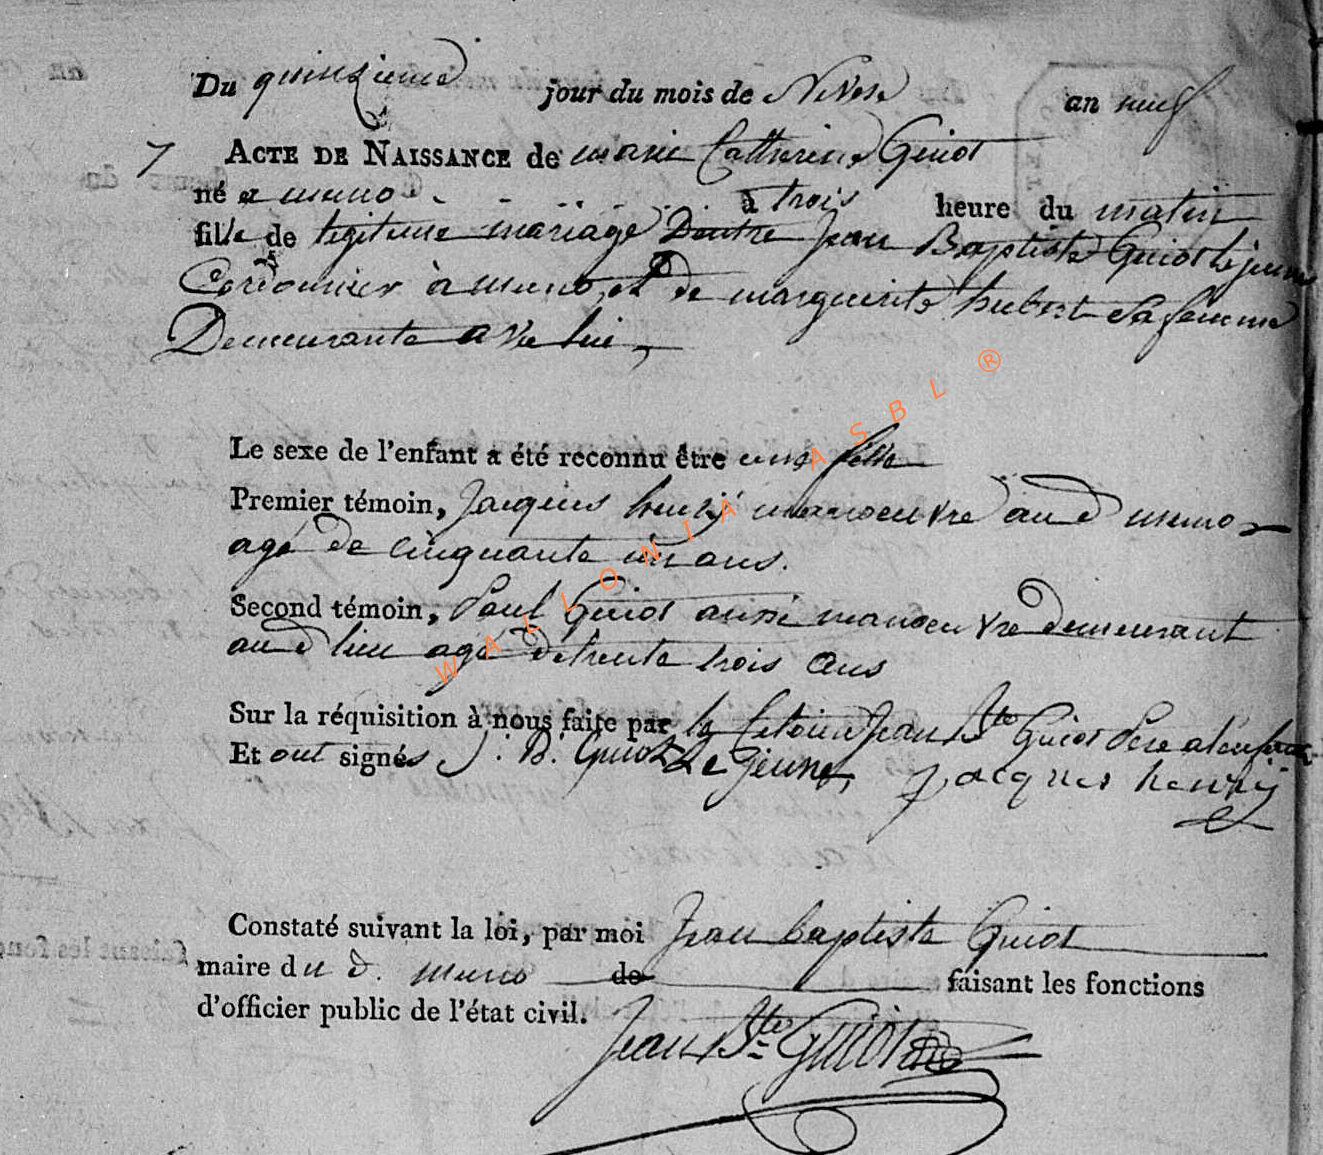 Du quinzieme jour du mois de Nivose an neuf
7 ACTE DE NAISSANCE de marie Catherine Guiot
né a muno à trois heure du matin
fille de legitime mariage Dentre Jean Baptiste Guiot le jeune
Cordonnier à muno et de marguerite hubert Sa femme
Demeurante avec lui,
Le sexe de l'enfant a été reconnu être une fille
Premier témoin, Jacques henrÿ manoeuvre aud muno
agé de cinquante un ans.
Second témoin, Paul Guiot aussi manoeuvre demeurant
aud lieu agé de trente trois ans
Sur la réquisition à nous faite par le Citoien Jean Bte Guiot Pere a l'enfant
Et ont signés J. B. Guiot Le jeune, jacques henrÿ
Constaté suivant la loi, par moi Jean baptiste Guiot
maire du d. muno de faisant les fonctions
d'officier public de l'état civil.
Jean Bte Guiot
WALLONIA ASBL ®